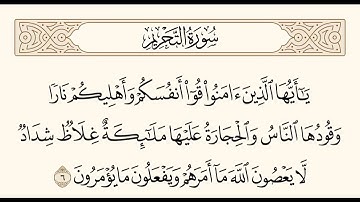 سُورَةُ التَّحْرِيمِ
يَٰٓأَيُّهَا ٱلَّذِينَ ءَامَنُوا۟ قُوٓا۟ أَنفُسَكُمْ وَأَهْلِيكُمْ نَارًا
وَقُودُهَا ٱلنَّاسُ وَٱلْحِجَارَةُ عَلَيْهَا مَلَٰٓئِكَةٌ غِلَاظٌ شِدَادٌ
لَّا يَعْصُونَ ٱللَّهَ مَآ أَمَرَهُمْ وَيَفْعَلُونَ مَا يُؤْمَرُونَ ٦